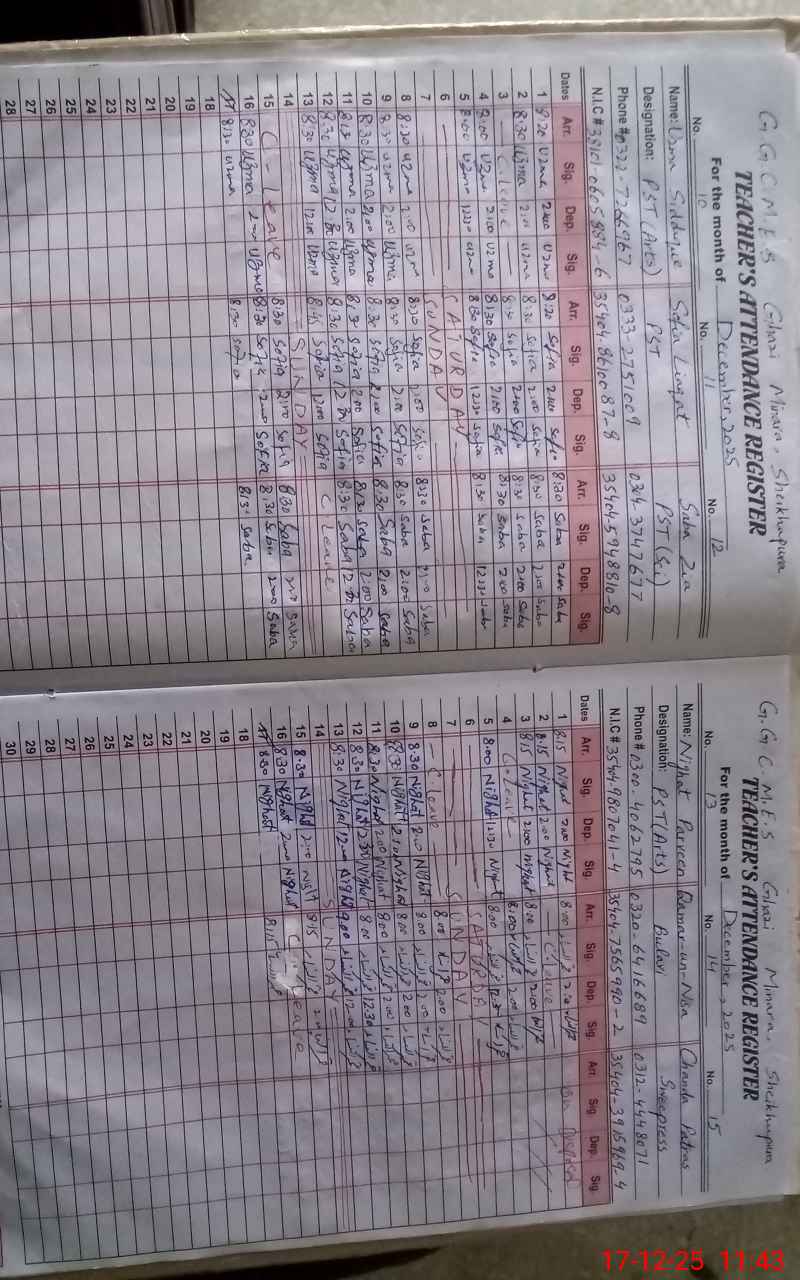 G.G.C.M.E.S Ghazi Minara, Sheikhupura
TEACHER'S ATTENDANCE REGISTER
For the month of December, 2025
No. 10 No. 11 No. 12
Name: Siddique Sofia Liaqat Saba Zia
Designation: PST (Arts) PST PST (Sci)
Phone # 0322-7266967 0333-2751009 0304-3747677
N.I.C # 35404 8610087-8 35404 5948810-8
Dates Arr. Sig. Dep. Sig. Arr. Sig. Dep. Sig. Arr. Sig. Dep. Sig.
1 8:20 Uzma 2:00 Uzma 8:20 Sofia 2:00 Sofia 8:30 Saba 2:00 Saba
2 8:30 Uzma 2:00 Uzma 8:30 Sofia 2:00 Sofia 8:30 Saba 2:00 Saba
3 C. leave 8:30 Sofia 2:00 Sofia 8:30 Saba 2:00 Saba
4 8:00 Uzma 2:00 Uzma 8:30 Sofia 2:00 Sofia 8:30 Saba 2:00 Saba
5 8:00 Uzma 12:30 Uzma 8:30 Sofia 12:30 Sofia 8:30 Saba 12:30 Saba
6 SATURDAY
7 SUNDAY
8 8:30 Uzma 2:00 Uzma 8:30 Sofia 2:00 Sofia 8:30 Saba 2:00 Saba
9 8:30 Uzma 2:00 Uzma 8:30 Sofia 2:00 Sofia 8:30 Saba 2:00 Saba
10 8:30 Uzma 2:00 Uzma 8:30 Sofia 2:00 Sofia 8:30 Saba 2:00 Saba
11 Uzma 2:00 Uzma 8:30 Sofia 2:00 Sofia 8:30 Saba 2:00 Saba
12 8:30 Uzma 12:30 Uzma 8:30 Sofia 12:30 Sofia 8:30 Saba Saba
13 8:30 Uzma 12:00 Uzma 8:45 Sofia 12:00 Sofia C leave
14 SUNDAY
15 C-Leave 8:30 Sofia 2:00 Sofia 8:30 Saba 2:00 Saba
16 8:30 Uzma 2:00 Uzma 8:30 Sofia 2:00 Sofia 8:30 Saba 2:00 Saba
17 8:30 Uzma 8:30 Sofia 8:30 Saba
18
19
20
21
22
23
24
25
26
27
28
G.G.C.M.E.S Ghazi Minara, Sheikhupura
TEACHER'S ATTENDANCE REGISTER
For the month of December, 2025
No. 13 No. 14 No. 15
Name: Nighat Parveen Qamar-un-Nisa Chanda Patras
Designation: PST (Arts) Bulavi Sweepress
Phone # 0300-4062795 0320-6416689 0312-4448071
N.I.C # 35404-9807041-4 35404-7565990-2 35404-3915969-4
Dates Arr. Sig. Dep. Sig. Arr. Sig. Dep. Sig. Arr. Sig. Dep. Sig.
1 8:15 Nighat 2:00 Nighat 8:00 2:00
2 8:15 Nighat 2:00 Nighat C. leave
3 8:15 Nighat 2:00 Nighat 8:00 2:00
4 C. leave 8:00 2:00
5 8:00 Nighat 12:30 Nighat 8:00
6 SATURDAY
7 SUNDAY
8 C leave 8:00 2:00
9 8:30 Nighat 2:00 Nighat 8:00 2:00
10 8:30 Nighat Nighat 8:00 2:00
11 8:30 Nighat 2:00 Nighat 8:00 2:00
12 8:30 Nighat 12:30 Nighat 8:00 12:30
13 8:30 Nighat 12:00 Nighat 9:00 12:00
14 SUNDAY
15 8:30 Nighat 2:00 Nighat 8:15 2:00
16 8:30 Nighat 2:00 Nighat C. Leave
17 8:30 Nighat 8:15
18
19
20
21
22
23
24
25
26
27
28
29
30
17-12-25 11:43